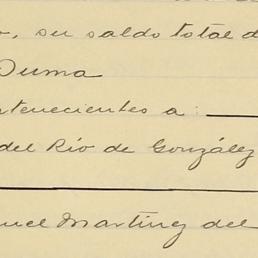 o, su saldo total d
Suma
rtenecientes a:
del Río de González
uel Martínez del